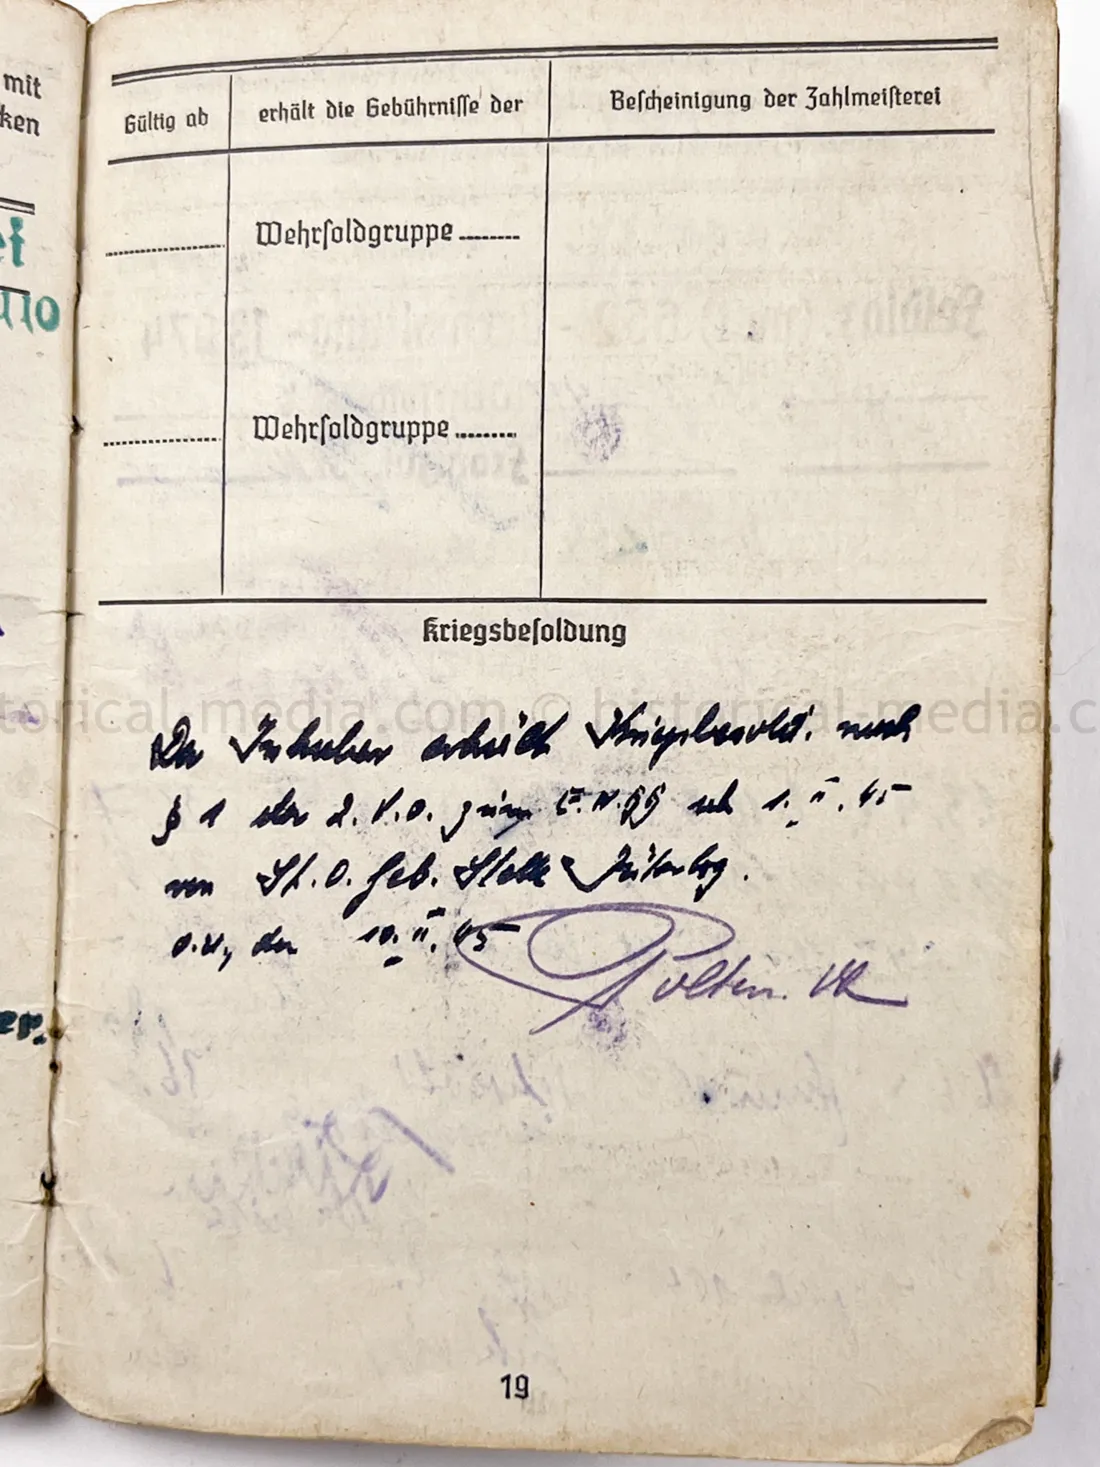 mit
ken
Gültig ab | erhält die Gebührnisse der | Bescheinigung der Zahlmeisterei
Wehrsoldgruppe ........
Wehrsoldgruppe ........
Kriegsbesoldung
historical-media.com © historical-media.com
Der Inhaber erhält Kriegsbesold. nach
§ 1 der 2. V.O. zum E.W.GG ab 1. II. 45
von St. O. Geb. Stelle Jüterbog.
O.U., den 10. II. 45
er.
19